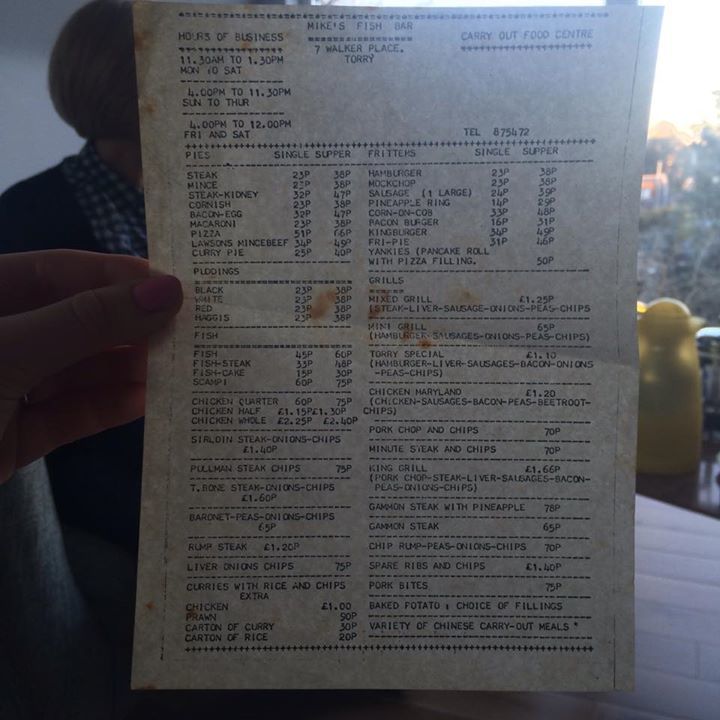 MIKE'S FISH BAR
HOURS OF BUSINESS
CARRY OUT FOOD CENTRE
7 WALKER PLACE.
TORRY
11.30AM TO 1.30PM
MON TO SAT
4.00PM TO 11.30PM
SUN TO THUR
4.00PM TO 12.00PM
FRI AND SAT
TEL 875472
PIES SINGLE SUPPER
STEAK 23P 38P
MINCE 23P 38P
STEAK-KIDNEY 32P 47P
CORNISH 23P 38P
BACON-EGG 32P 47P
MACARONI 23P 38P
PIZZA 51P 66P
LAWSONS MINCEBEEF 34P 49P
CURRY PIE 25P 40P
PUDDINGS
BLACK 23P 38P
WHITE 23P 38P
RED 23P 38P
HAGGIS 23P 38P
FISH
FISH 45P 60P
FISH-STEAK 33P 48P
FISH-CAKE 15P 30P
SCAMPI 60P 75P
CHICKEN QUARTER 60P 75P
CHICKEN HALF £1.15P£1.30P
CHICKEN WHOLE £2.25P £2.40P
SIRLOIN STEAK-ONIONS-CHIPS
£1.40P
PULLMAN STEAK CHIPS 75P
T.BONE STEAK-ONIONS-CHIPS
£1.60P
BARONET-PEAS-ONIONS-CHIPS
65P
RUMP STEAK £1.20P
LIVER ONIONS CHIPS 75P
CURRIES WITH RICE AND CHIPS
EXTRA
CHICKEN £1.00
PRAWN 90P
CARTON OF CURRY 30P
CARTON OF RICE 20P
FRITTERS SINGLE SUPPER
HAMBURGER 23P 38P
MOCKCHOP 23P 38P
SAUSAGE (1 LARGE) 24P 39P
PINEAPPLE RING 14P 29P
CORN-ON-COB 33P 48P
BACON BURGER 16P 31P
KINGBURGER 34P 49P
FRI-PIE 31P 46P
YANKIES (PANCAKE ROLL
WITH PIZZA FILLING. 50P
GRILLS
MIXED GRILL £1.25P
(STEAK-LIVER-SAUSAGE-ONIONS-PEAS-CHIPS
MINI GRILL 65P
(HAMBURGER-SAUSAGES-ONIONS-PEAS-CHIPS)
TORRY SPECIAL £1.10
(HAMBURGER-LIVER-SAUSAGES-BACON-ONIONS
-PEAS-CHIPS)
CHICKEN MARYLAND £1.20
(CHICKEN-SAUSAGES-BACON-PEAS-BEETROOT-
CHIPS)
PORK CHOP AND CHIPS 70P
MINUTE STEAK AND CHIPS 70P
KING GRILL £1.66P
(PORK CHOP-STEAK-LIVER-SAUSAGES-BACON-
PEAS-ONIONS-CHIPS)
GAMMON STEAK WITH PINEAPPLE 78P
GAMMON STEAK 65P
CHIP RUMP-PEAS-ONIONS-CHIPS 70P
SPARE RIBS AND CHIPS £1.40P
PORK BITES 75P
BAKED POTATO : CHOICE OF FILLINGS
VARIETY OF CHINESE CARRY-OUT MEALS *